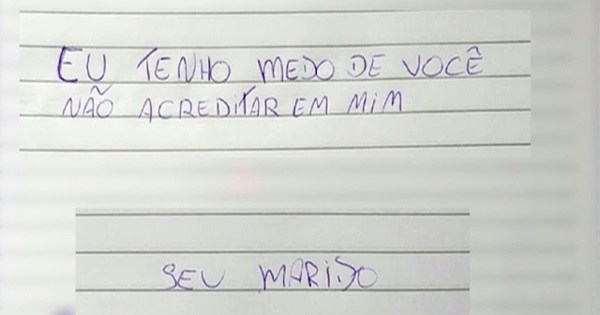 EU TENHO MEDO DE VOCÊ
NÃO ACREDITAR EM MIM
SEU MARIDO